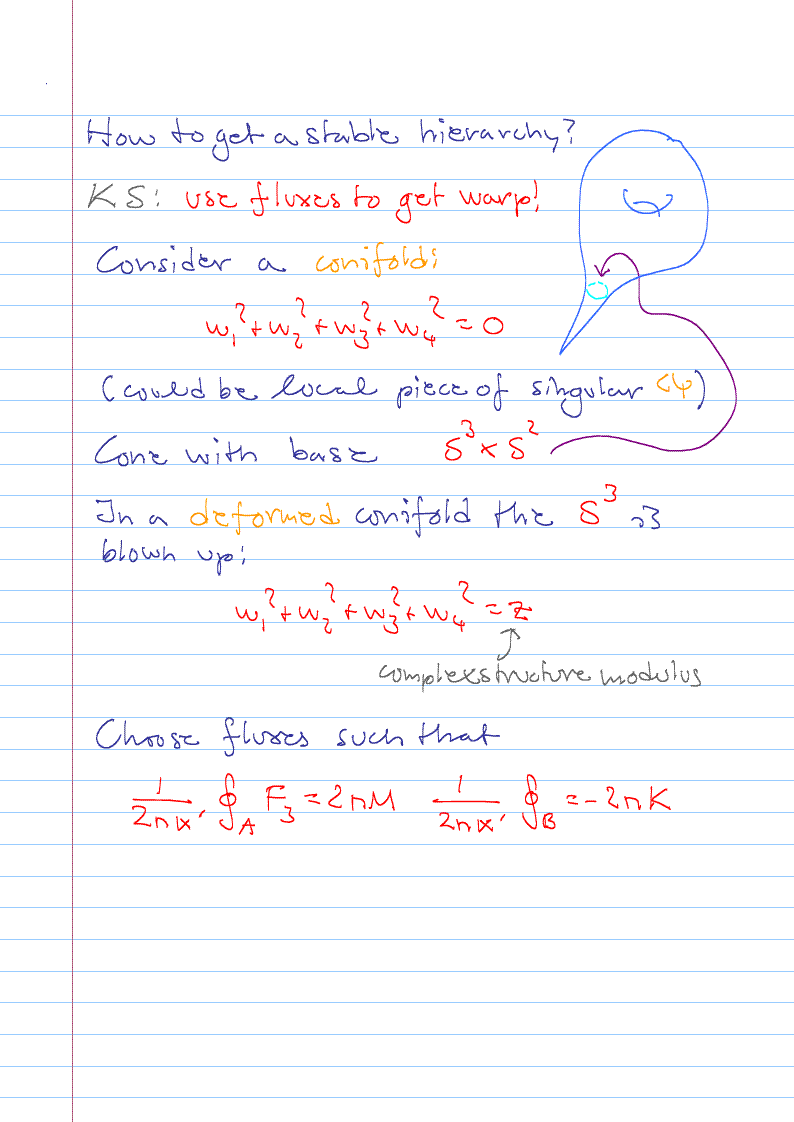 How to get a stable hierarchy?
KS: use fluxes to get warp!
Consider a conifold:
w₁² + w₂² + w₃² + w₄² = 0
(could be local piece of singular CY)
Cone with base S³ × S²
In a deformed conifold the S³ is
blown up:
w₁² + w₂² + w₃² + w₄² = z
complex structure modulus
Choose fluxes such that
1/(2πα') ∮_A F₃ = 2πM 1/(2πα') ∮_B = -2πK